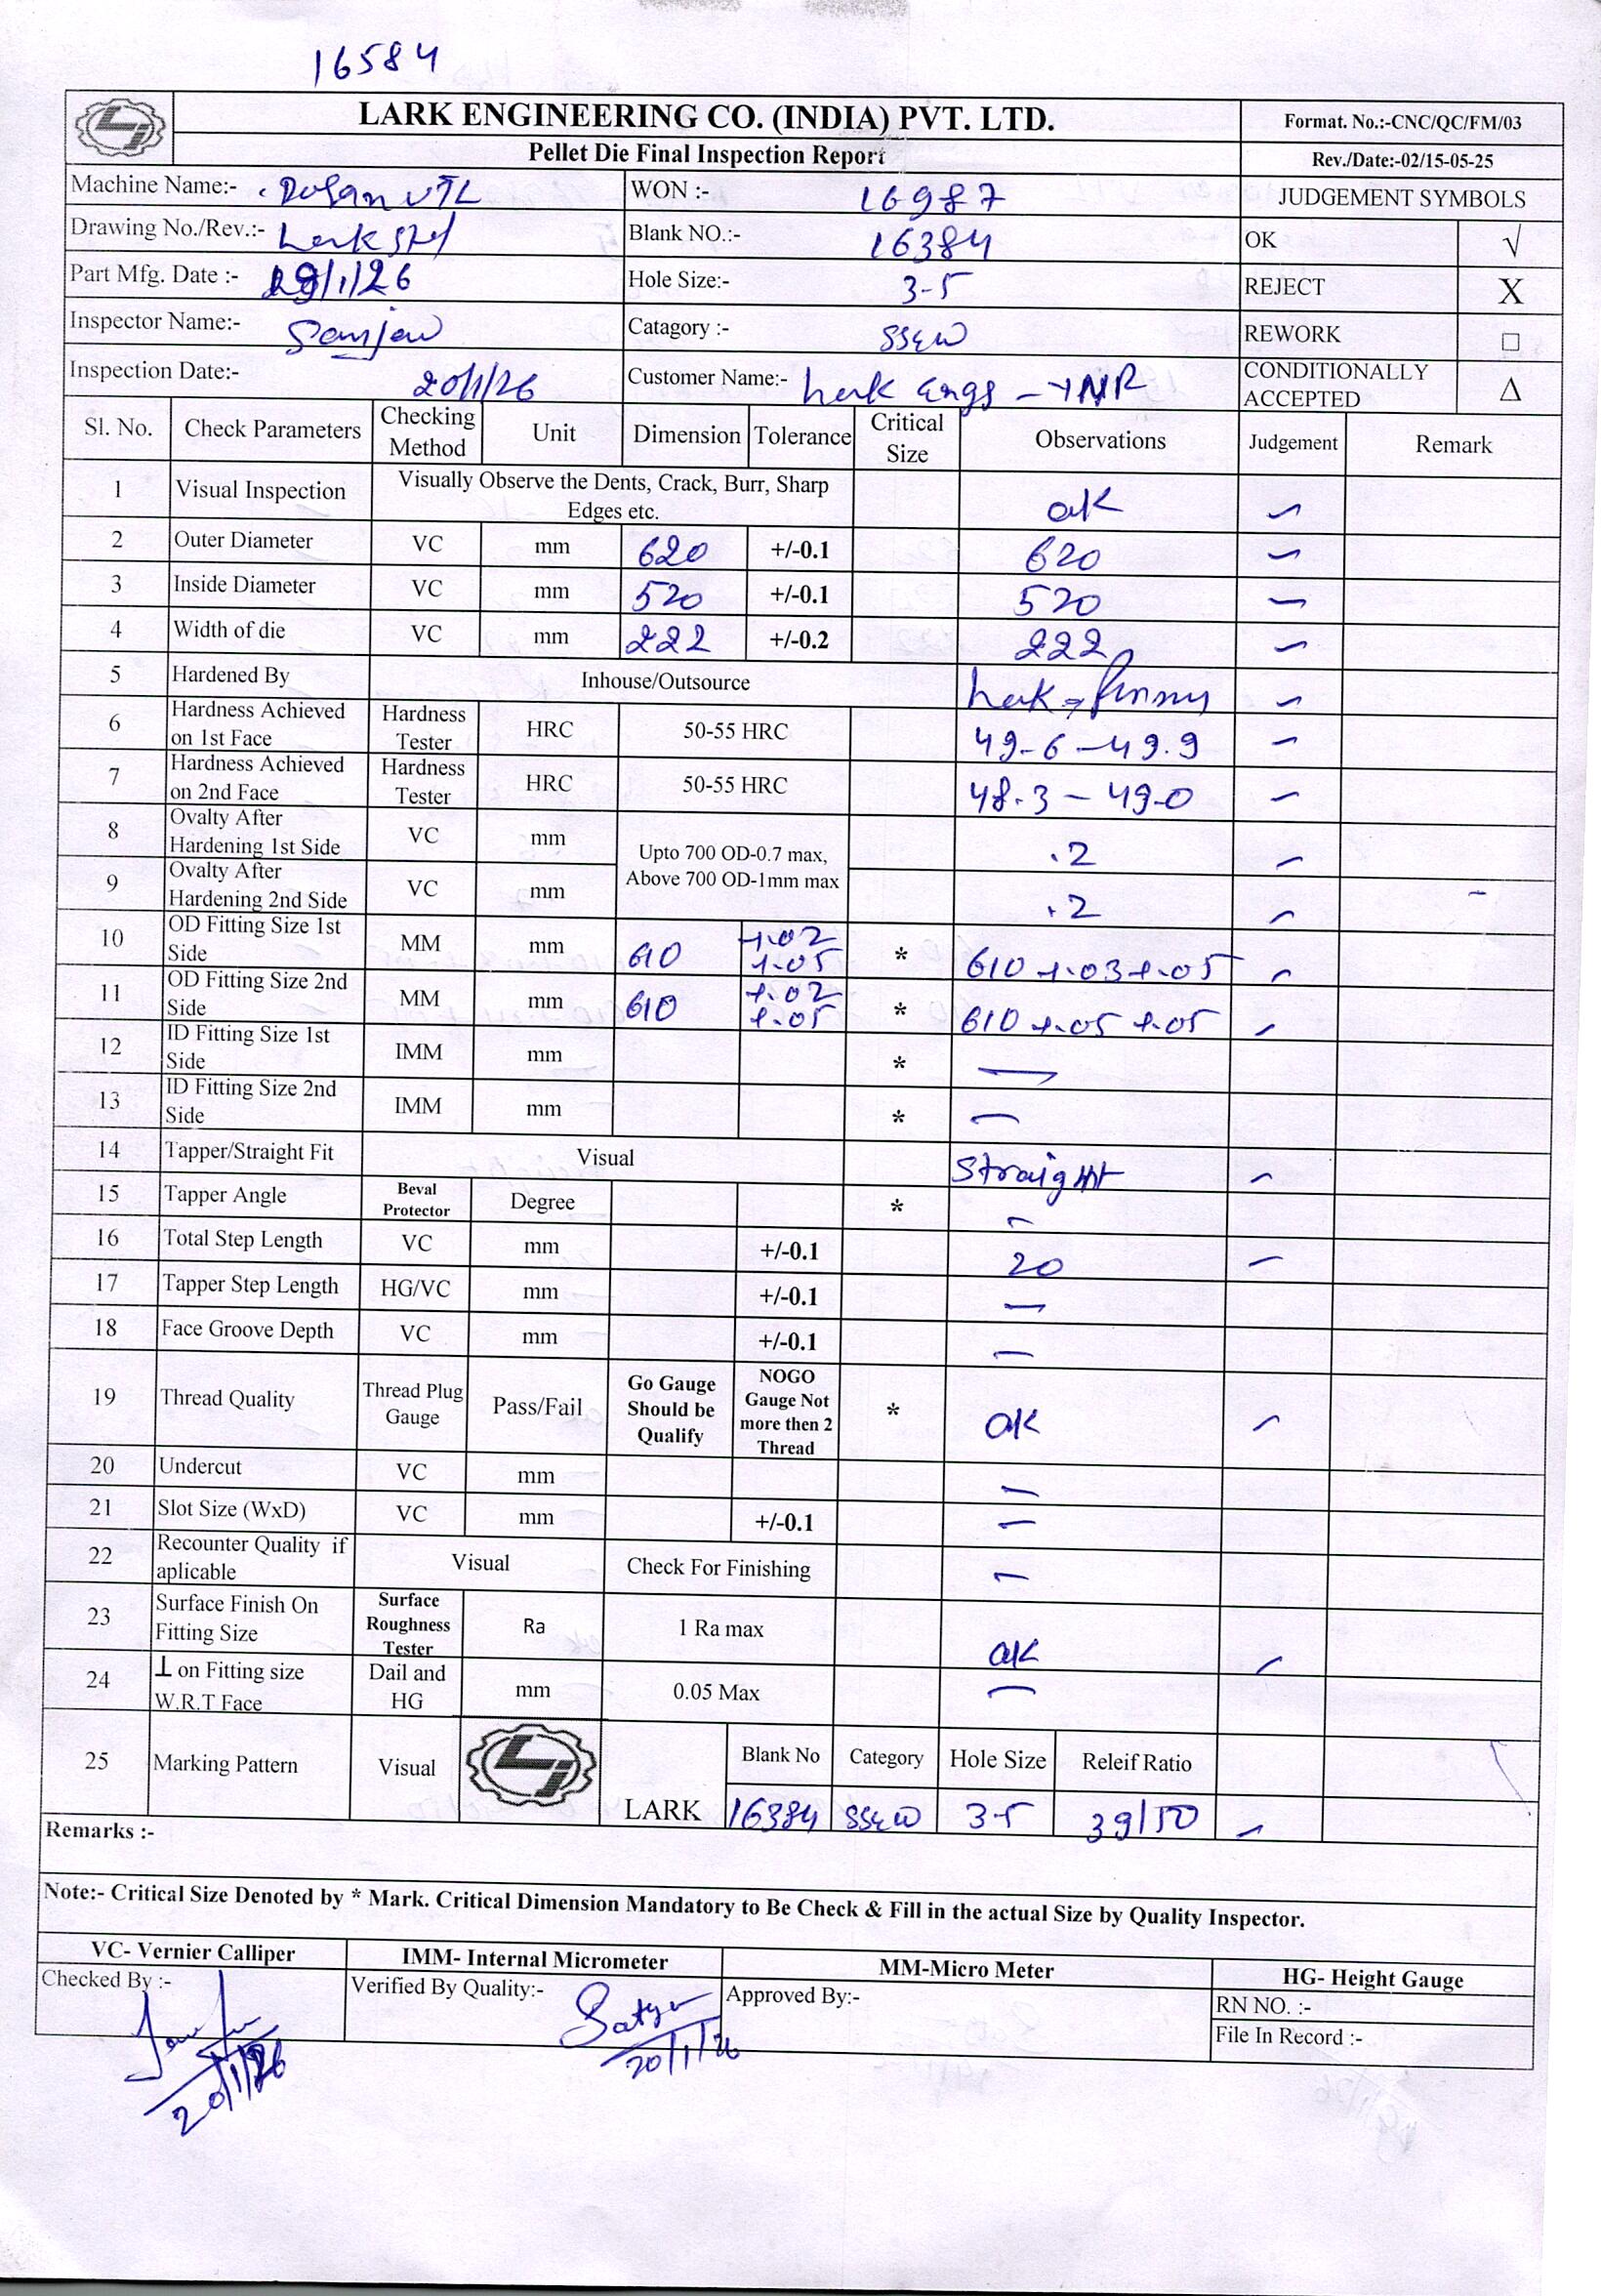 16584
LARK ENGINEERING CO. (INDIA) PVT. LTD.
Format. No.:-CNC/QC/FM/03
Pellet Die Final Inspection Report
Rev./Date:-02/15-05-25
Machine Name:- VTL WON :- 16987 JUDGEMENT SYMBOLS
Drawing No./Rev.:- Lark Blank NO.:- 16384 OK √
Part Mfg. Date :- 19/1/26 Hole Size:- 3-5 REJECT X
Inspector Name:- Catagory :- REWORK □
Inspection Date:- 20/1/26 Customer Name:- Lark Engg - YNR CONDITIONALLY ACCEPTED Δ
Sl. No. Check Parameters Checking Method Unit Dimension Tolerance Critical Size Observations Judgement Remark
1 Visual Inspection Visually Observe the Dents, Crack, Burr, Sharp Edges etc. ok
2 Outer Diameter VC mm 620 +/-0.1 620
3 Inside Diameter VC mm 520 +/-0.1 520
4 Width of die VC mm 222 +/-0.2 222
5 Hardened By Inhouse/Outsource Lark
6 Hardness Achieved on 1st Face Hardness Tester HRC 50-55 HRC 49-6 - 49.9
7 Hardness Achieved on 2nd Face Hardness Tester HRC 50-55 HRC 48.3 - 49-0
8 Ovalty After Hardening 1st Side VC mm Upto 700 OD-0.7 max, Above 700 OD-1mm max .2
9 Ovalty After Hardening 2nd Side VC mm .2
10 OD Fitting Size 1st Side MM mm 610 +.02 +.05 * 610 +.03 +.05
11 OD Fitting Size 2nd Side MM mm 610 +.02 +.05 * 610 +.05 +.05
12 ID Fitting Size 1st Side IMM mm * —
13 ID Fitting Size 2nd Side IMM mm * —
14 Tapper/Straight Fit Visual Straight
15 Tapper Angle Beval Protector Degree * —
16 Total Step Length VC mm +/-0.1 20
17 Tapper Step Length HG/VC mm +/-0.1 —
18 Face Groove Depth VC mm +/-0.1 —
19 Thread Quality Thread Plug Gauge Pass/Fail Go Gauge Should be Qualify NOGO Gauge Not more then 2 Thread * ok
20 Undercut VC mm —
21 Slot Size (WxD) VC mm +/-0.1 —
22 Recounter Quality if aplicable Visual Check For Finishing —
23 Surface Finish On Fitting Size Surface Roughness Tester Ra 1 Ra max ok
24 ⊥ on Fitting size W.R.T Face Dail and HG mm 0.05 Max —
25 Marking Pattern Visual LARK Blank No Category Hole Size Releif Ratio
16384 3-5 39/50
Remarks :-
Note:- Critical Size Denoted by * Mark. Critical Dimension Mandatory to Be Check & Fill in the actual Size by Quality Inspector.
VC- Vernier Calliper IMM- Internal Micrometer MM-Micro Meter HG- Height Gauge
Checked By :- Verified By Quality:- Approved By:- RN NO. :-
File In Record :-
20/1/26 20/1/26